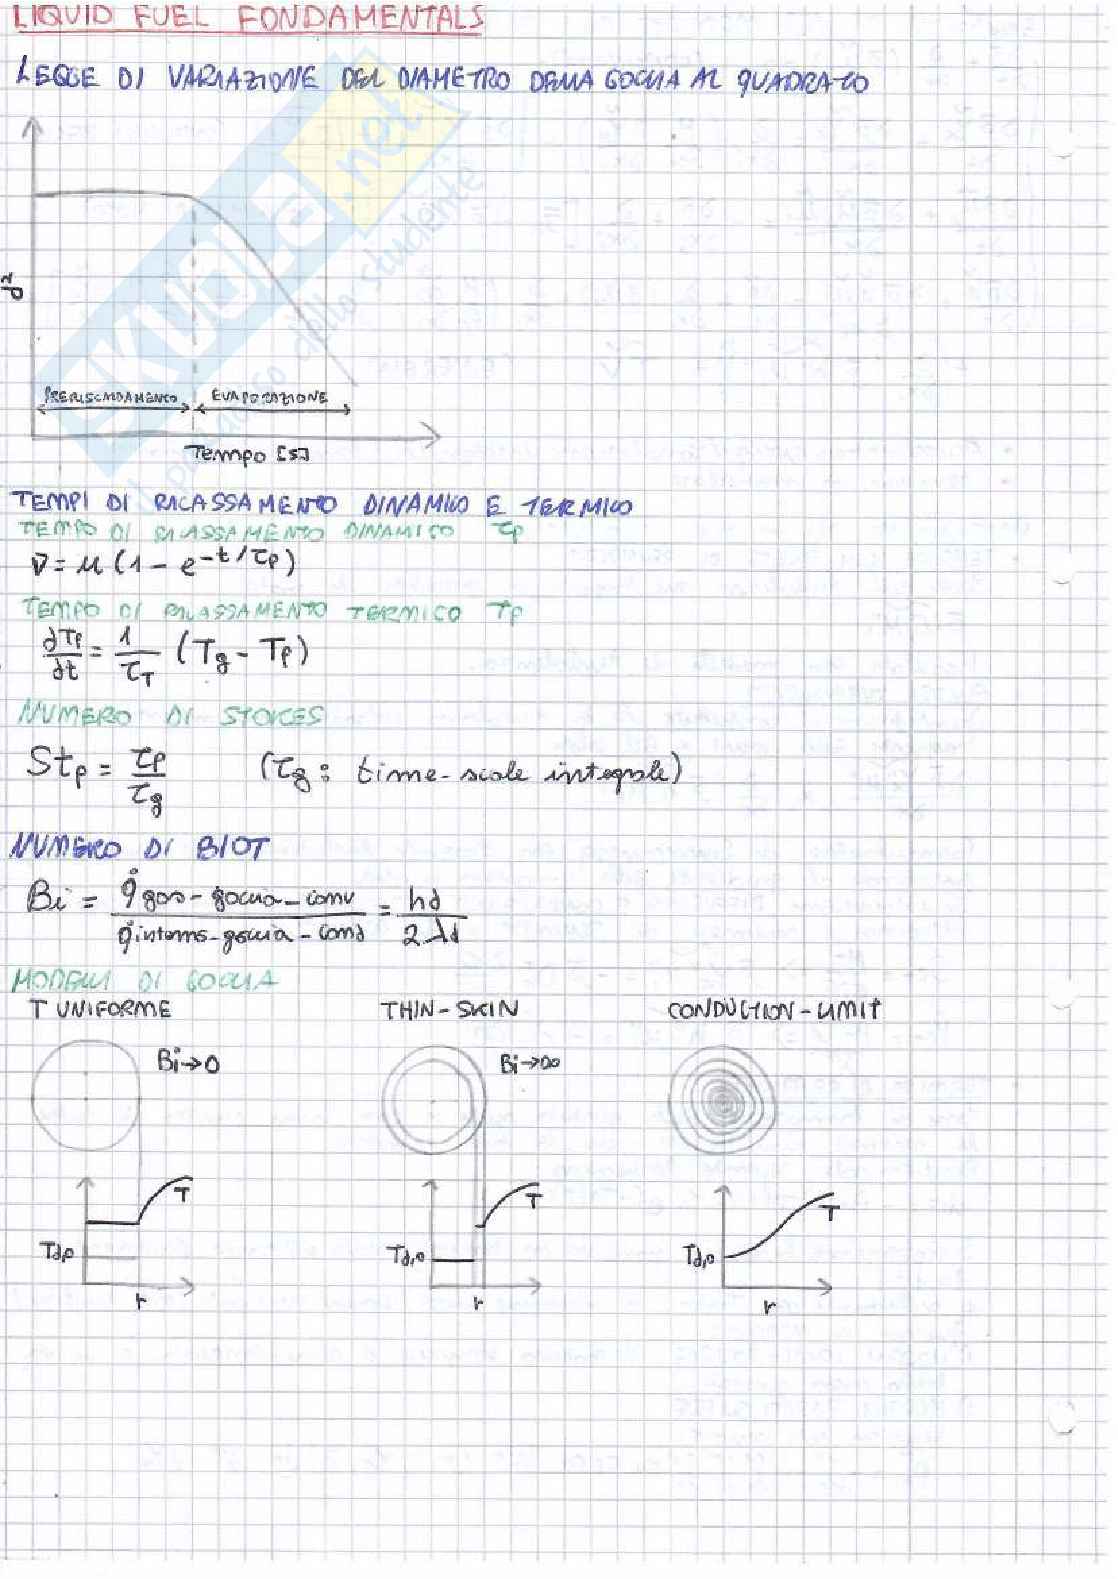 LIQUID FUEL FONDAMENTALS
LEGGE DI VARIAZIONE DEL DIAMETRO DELLA GOCCIA AL QUADRATO
SKUOLA.net
il paradiso dello studente
d²
PRERISCALDAMENTO EVAPORAZIONE
Tempo [s]
TEMPI DI RILASSAMENTO DINAMICO E TERMICO
TEMPO DI RILASSAMENTO DINAMICO τp
v = u (1 - e^-t/τp)
TEMPO DI RILASSAMENTO TERMICO Tp
dTp/dt = 1/τT (Tg - Tp)
NUMERO DI STOKES
Stp = τp/τg (τg: time-scale integrale)
NUMERO DI BIOT
Bi = q̇ gas-goccia-conv / q̇ interns-goccia-cond = hd / 2λd
MODELLI DI GOCCIA
T UNIFORME THIN-SKIN CONDUCTION-LIMIT
Bi→0 Bi→∞
T T T
Td,0 Td,0 Td,0
r r r